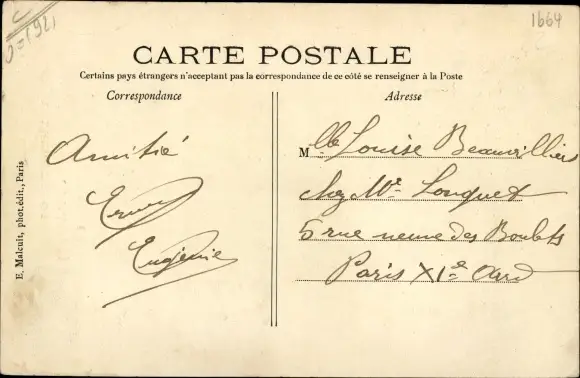 1664
CARTE POSTALE
Certains pays étrangers n'acceptent pas la correspondance de ce côté se renseigner à la Poste
Correspondance
Adresse
Amitié
Eugénie
Mlle Louise Beauvilliers
chez Mr Louquet
5 rue neuve des Boulets
Paris XIe Ard
E. Malcuit, phot.édit., Paris